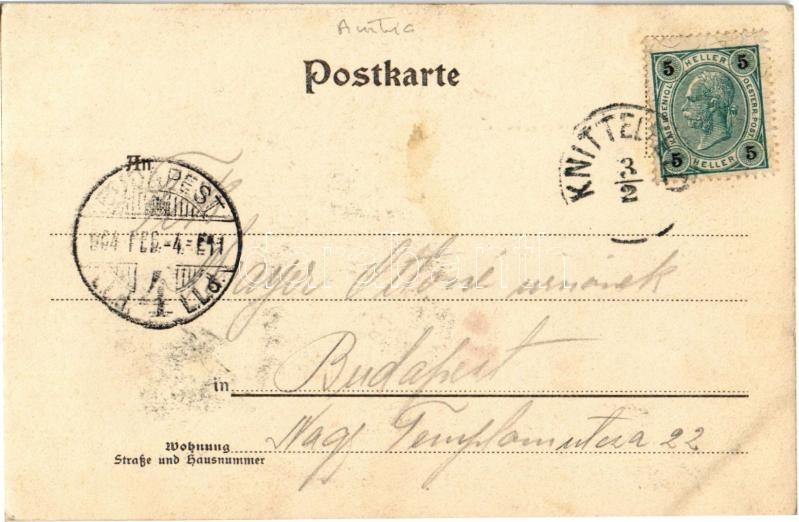 Austria
Postkarte
5 HELLER 5
KAIS. KÖNIGL. OESTERR. POST.
5 HELLER 5
KNITTEL
3
An
BUDAPEST
904 FEB.-4.-E11
4
darabanth
Mayer urnőnek
in Budapest
Nagy Templom utca 22
Wohnung
Straße und Hausnummer